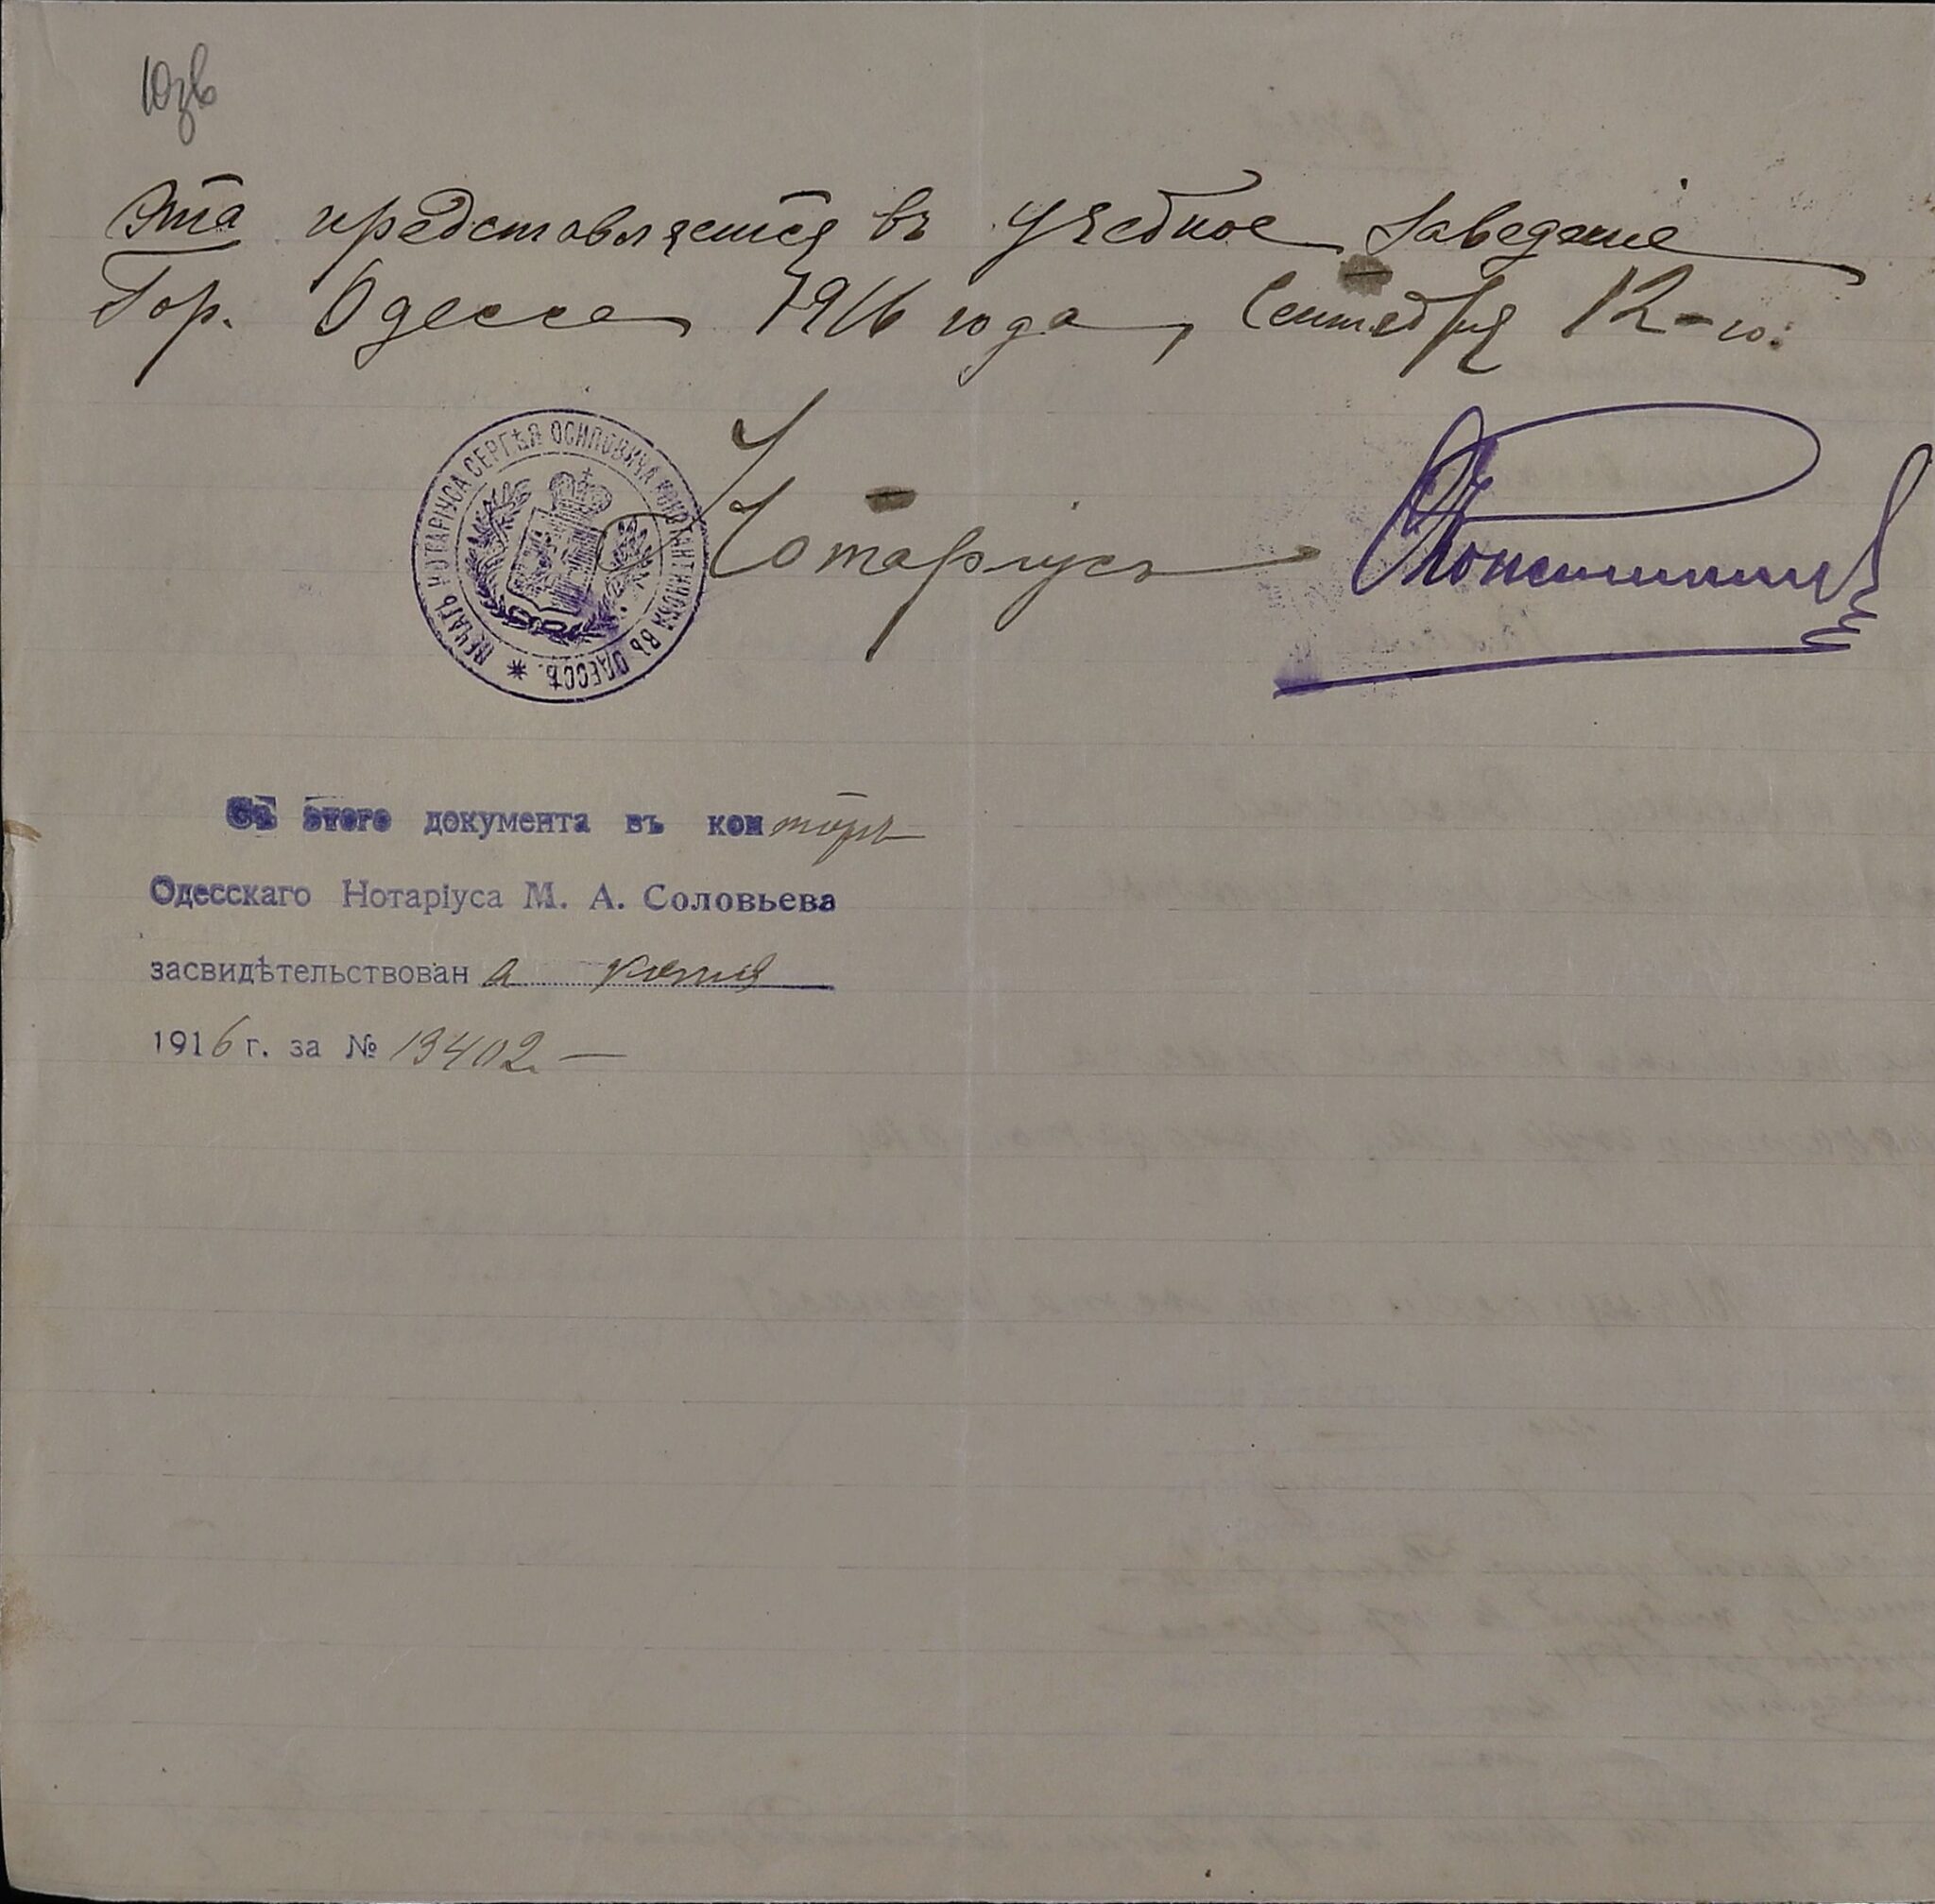 10зв
Эта представляется въ учебное заведеніе
Гор. Одесса 1916 года, Сентября 12-го.
ПЕЧАТЬ НОТАРІУСА СЕРГѢЯ ОСИПОВИЧА КОНСТАНТИНОВА ВЪ ОДЕССѢ. *
Нотаріусъ
Съ этого документа въ конторѣ
Одесскаго Нотаріуса М. А. Соловьева
засвидѣтельствована копія
1916 г. за № 13402.—